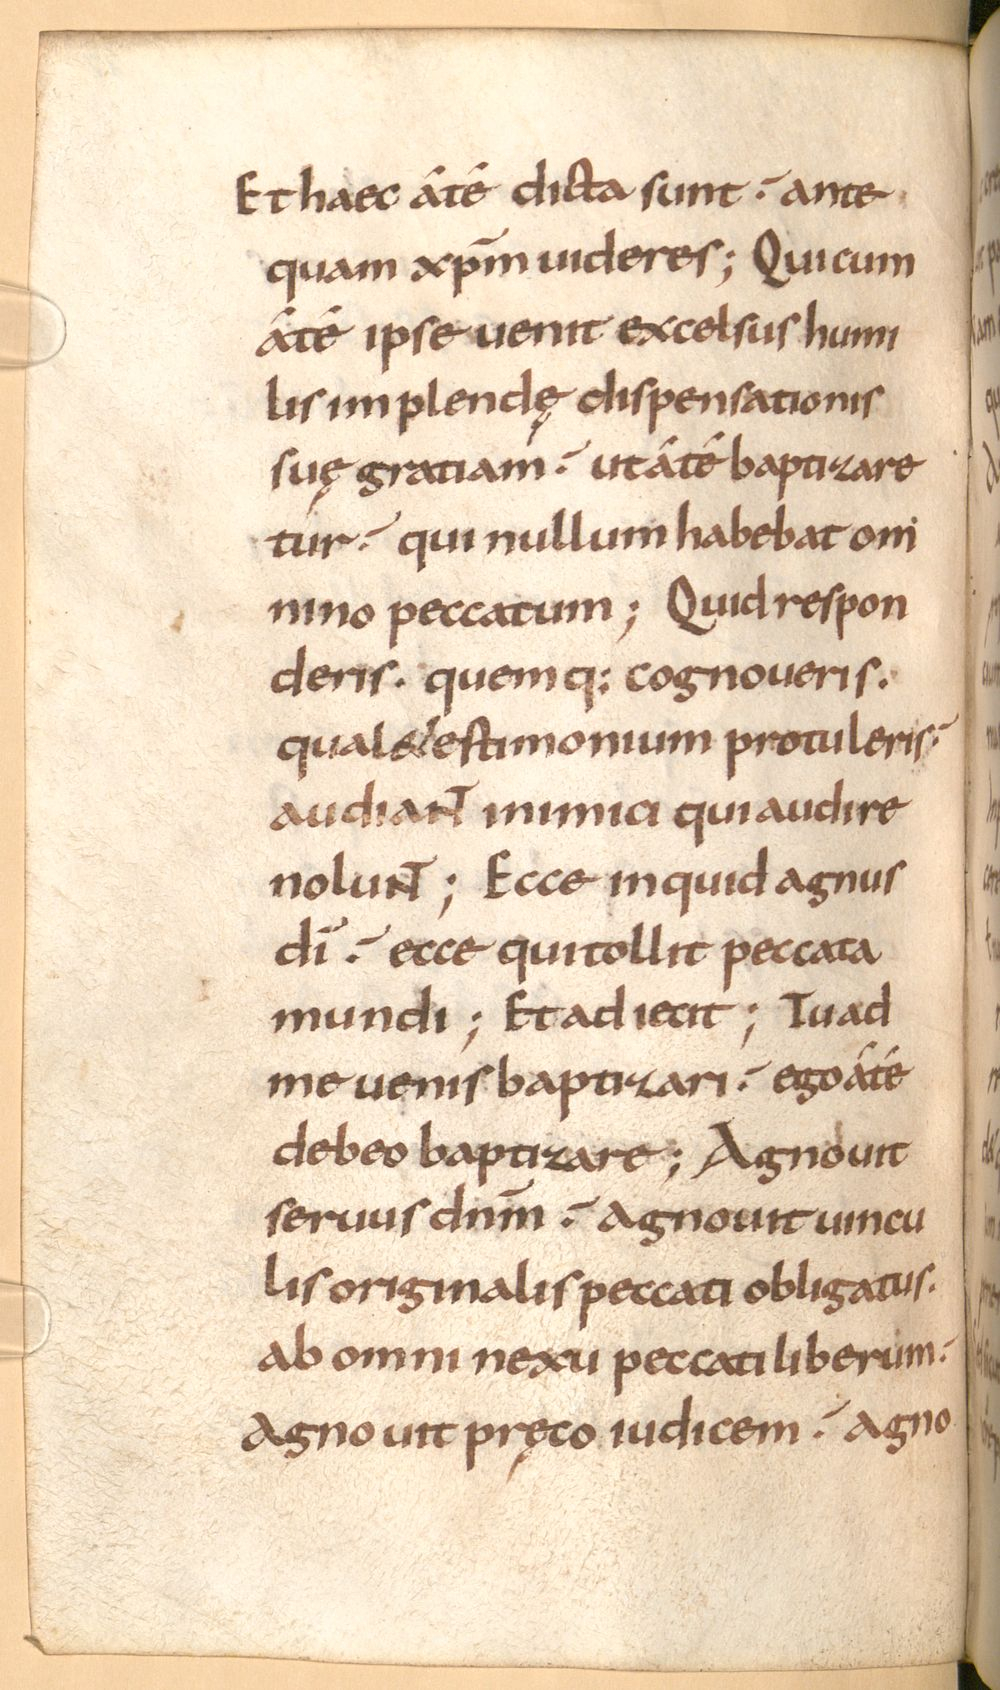 Et haec a͛te͛ dicta sunt · ante
quam xp̄m uideres; Qui cum
a͛te͛ ipse uenit excelsus humi
lis implendę dispensationis
suę gratiam · ut a͛te͛ baptizare
tur · qui nullum habebat om
nino peccatum; Quid respon
deris. quemq: cognoueris.
qual& testimonium protuleris ·
audiant inimici qui audire
nolunt; Ecce inquid agnus
dī · ecce qui tollit peccata
mundi; Et adiecit; Tu ad
me uenis baptizari · ego a͛te͛
debeo baptizare; Agnouit
seruus dnm̄ · agnouit uincu
lis originalis peccati obligatus.
ab omni nexu peccati liberum ·
Agnouit pręco iudicem · agno